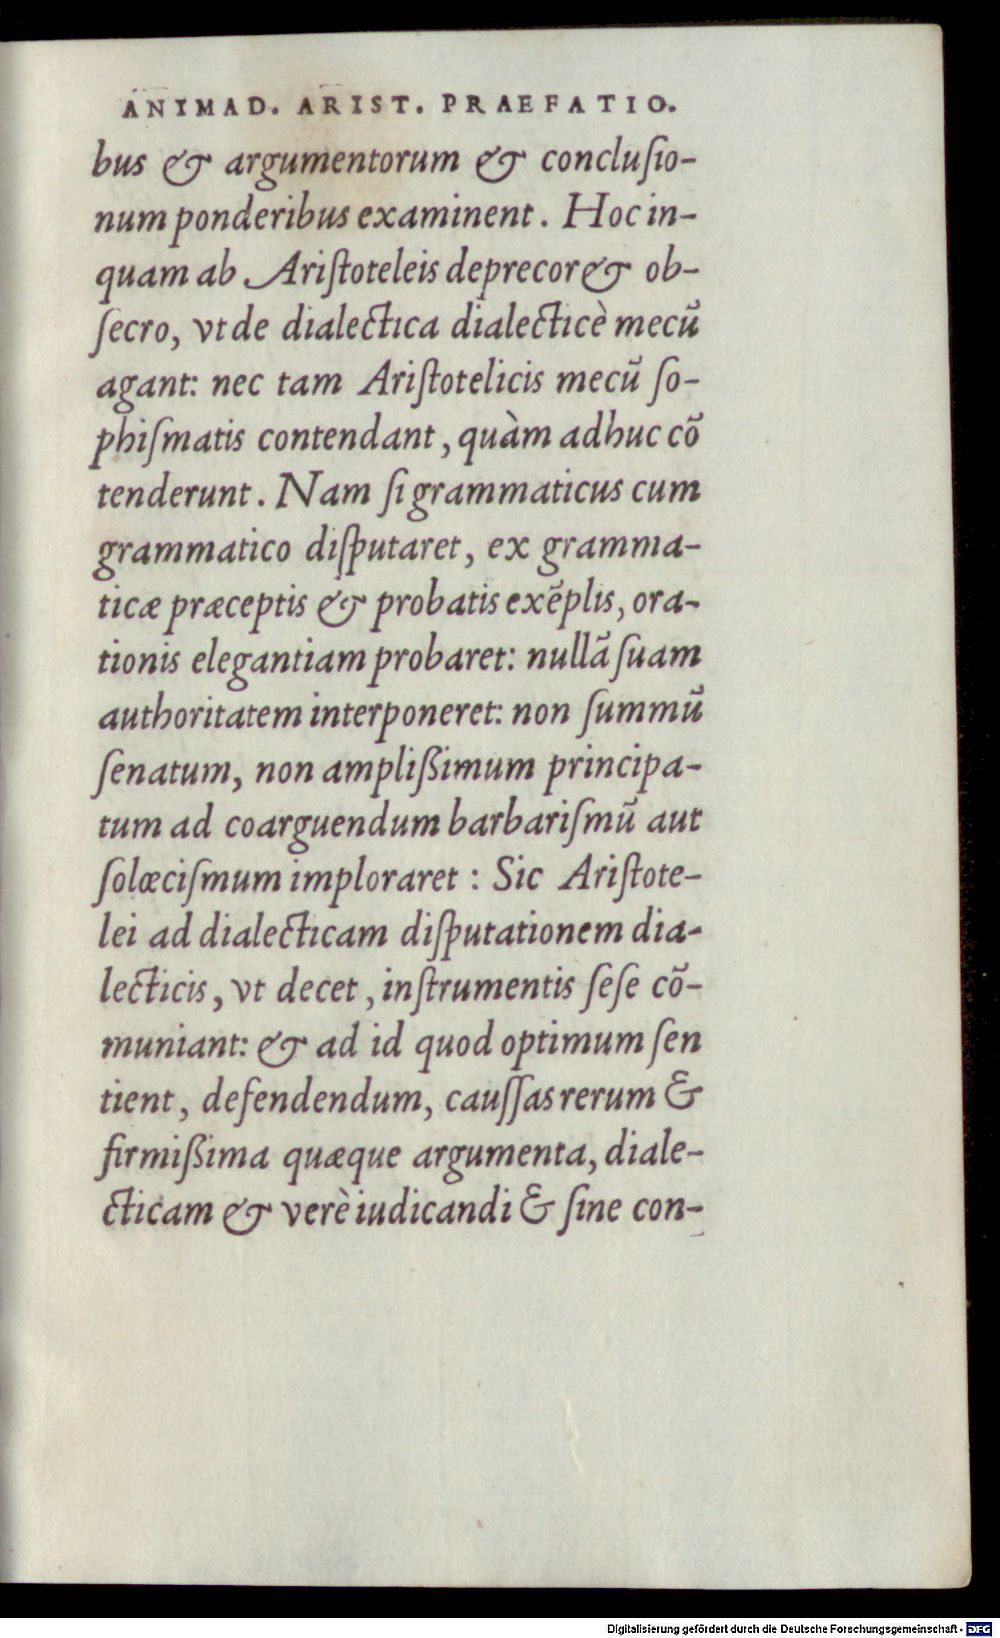 ANIMAD. ARIST. PRAEFATIO.
bus & argumentorum & concluſio-
num ponderibus examinent. Hoc in-
quam ab Ariſtoteleis deprecor & ob-
ſecro, vt de dialectica dialecticè mecū
agant: nec tam Ariſtotelicis mecū ſo-
phiſmatis contendant, quàm adhuc cō
tenderunt. Nam ſi grammaticus cum
grammatico diſputaret, ex gramma-
ticæ præceptis & probatis exēplis, ora-
tionis elegantiam probaret: nullā ſuam
authoritatem interponeret: non ſummū
ſenatum, non ampliſsimum principa-
tum ad coarguendum barbariſmū aut
ſolœciſmum imploraret : Sic Ariſtote-
lei ad dialecticam diſputationem dia-
lecticis, vt decet, inſtrumentis ſeſe cō-
muniant: & ad id quod optimum ſen
tient, defendendum, cauſſas rerum &
firmiſsima quæque argumenta, diale-
cticam & verè iudicandi & ſine con-
Digitalisierung gefördert durch die Deutsche Forschungsgemeinschaft - DFG